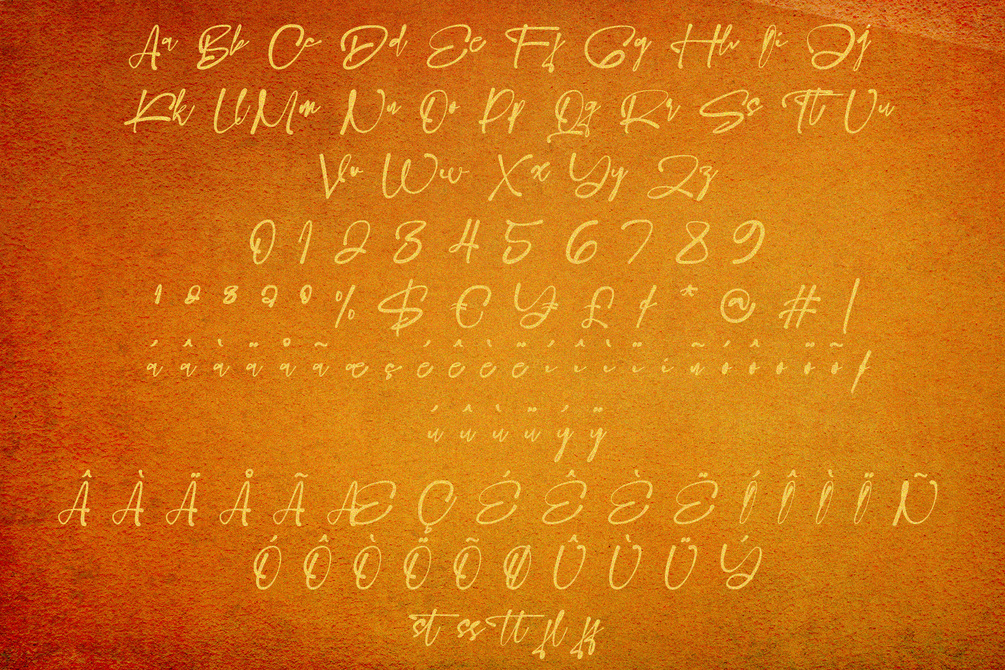 Aa Bb Cc Dd Ee Ff Gg Hh Ii Jj
Kk Ll Mm Nn Oo Pp Qq Rr Ss Tt Uu
Vv Ww Xx Yy Zz
0 1 2 3 4 5 6 7 8 9
% $ € ¥ £ * @ # |
á â à ä å ã æ ç é ê è ë í î ì ï ñ ó ô ò ö õ
ú û ù ü ý ÿ
Â À Ä Å Ã Æ Ç É Ê È Ë Í Î Ì Ï Ñ
Ó Ô Ò Ö Õ Ø Û Ù Ü Ý
st ss tt fl ff